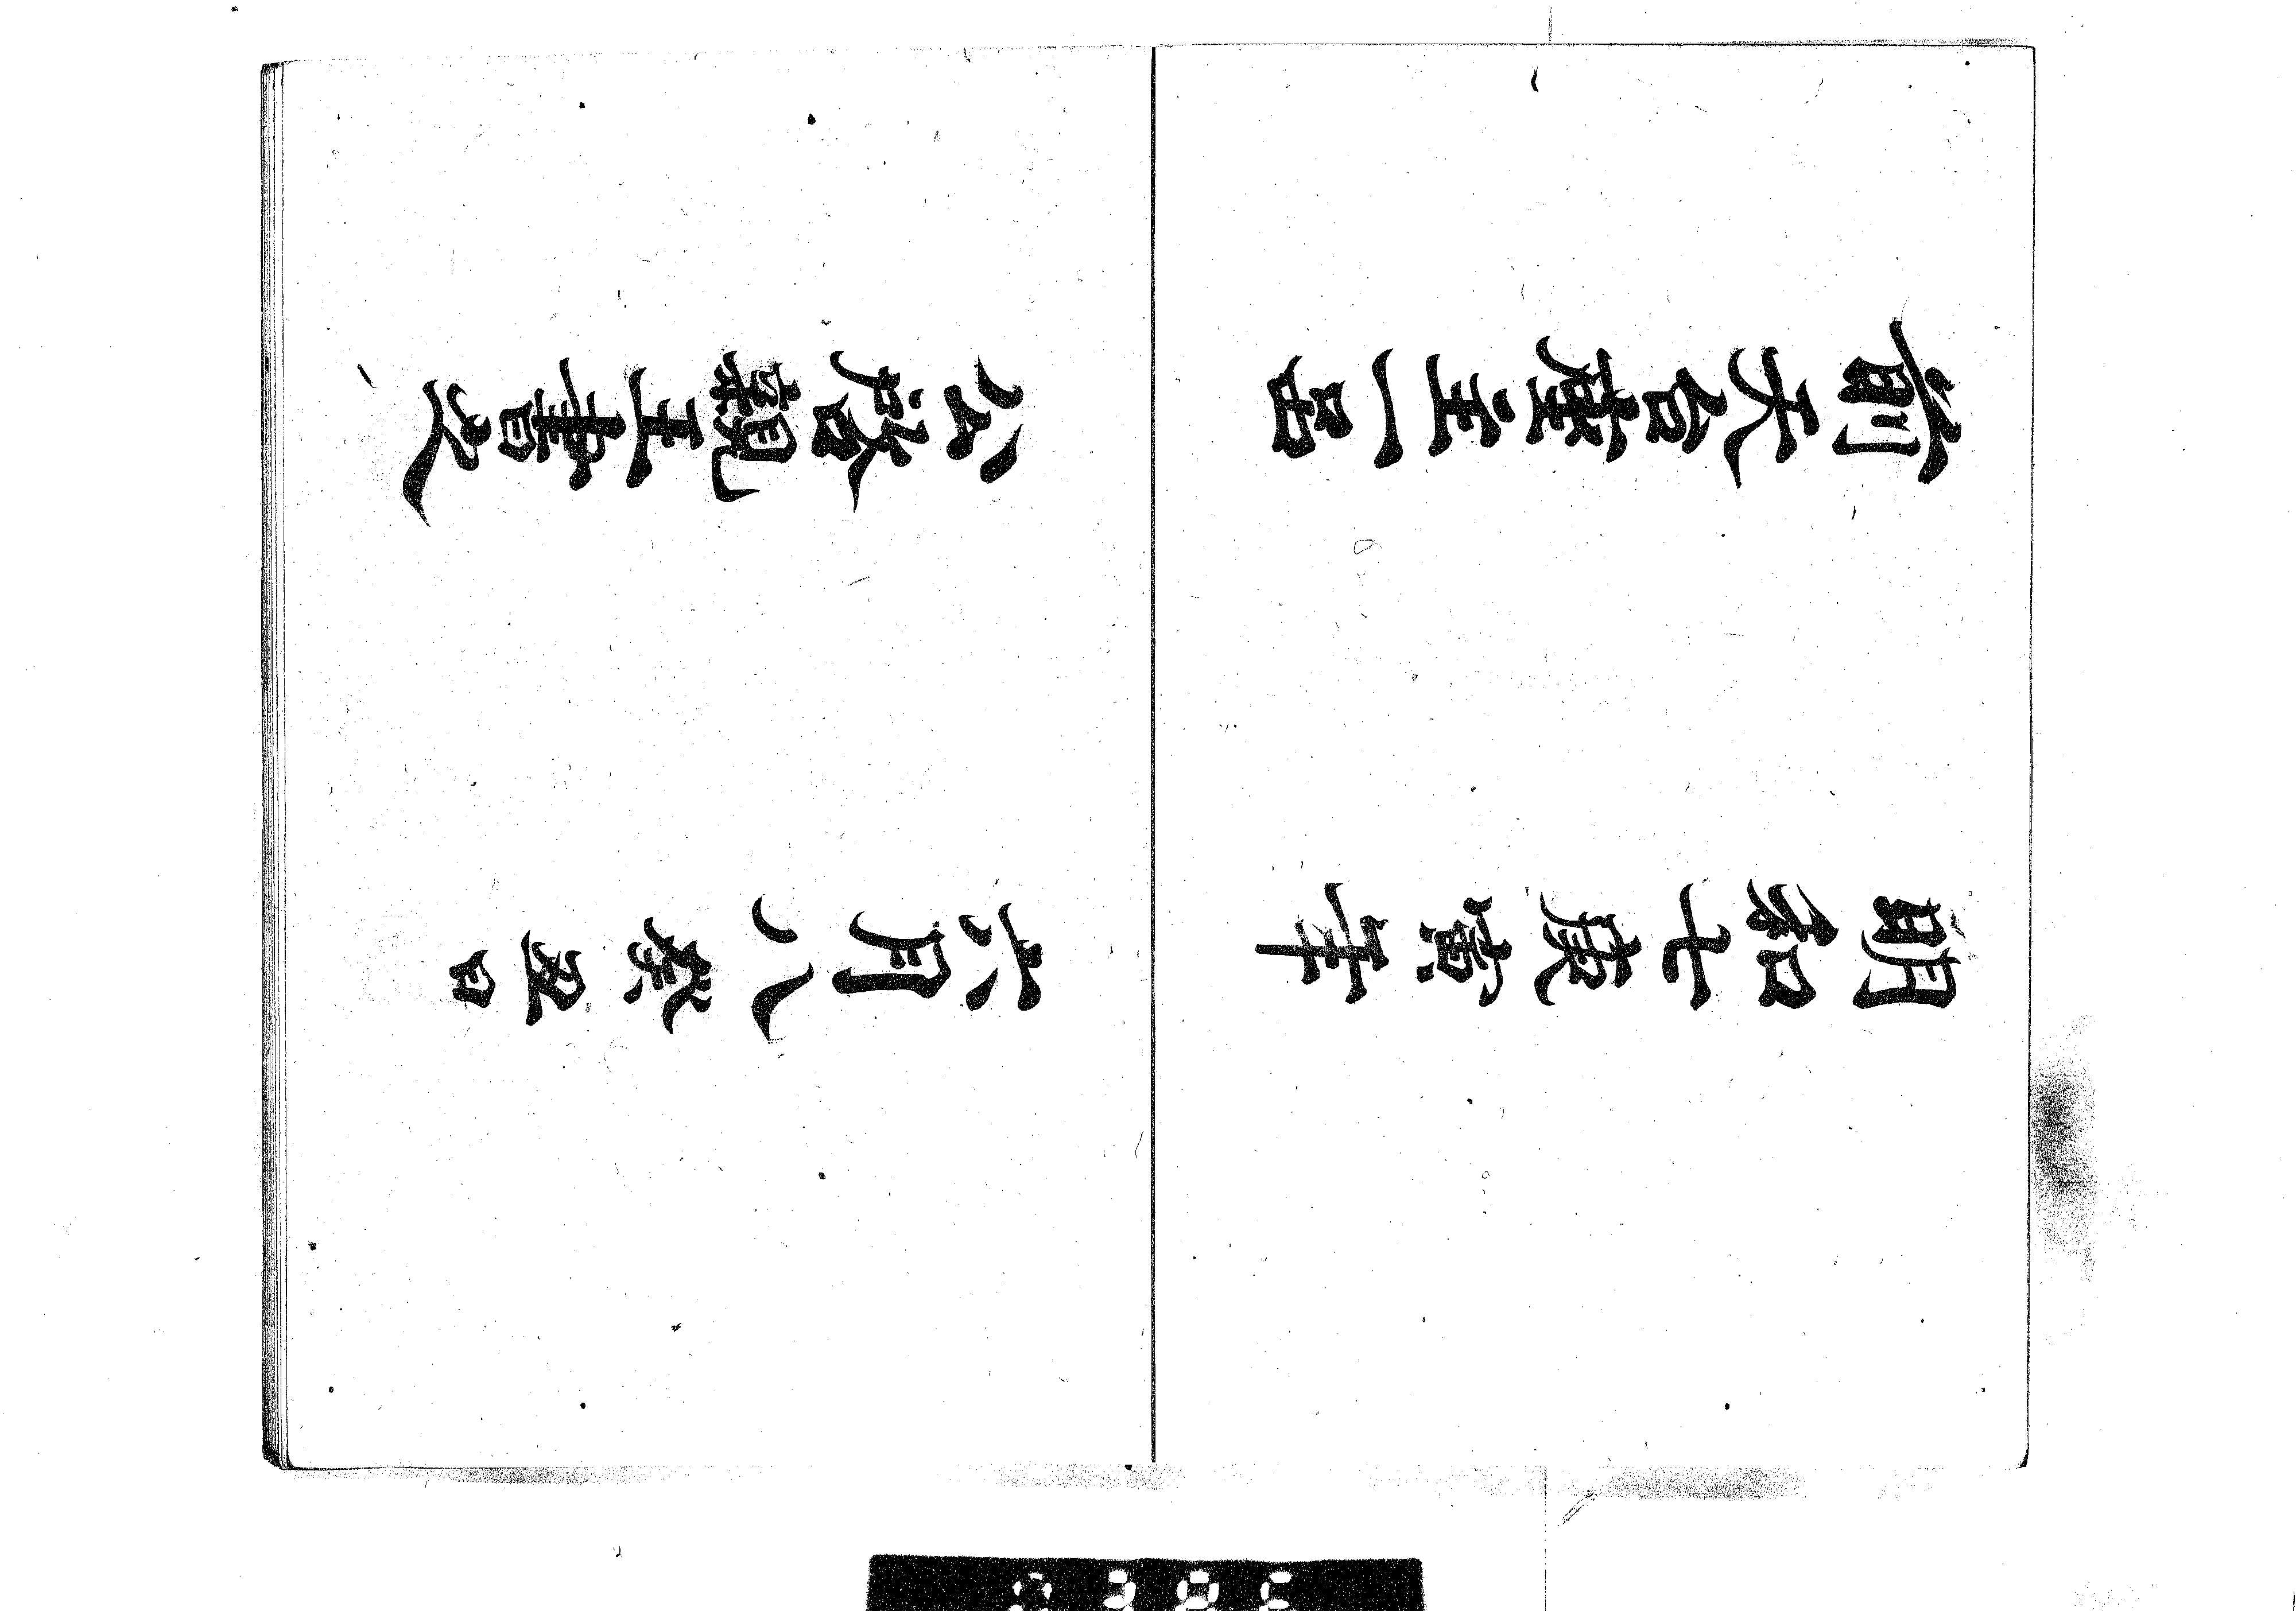 前天台座主一品
公啓親王書之
明和七庚寅年
六月八癸丑日